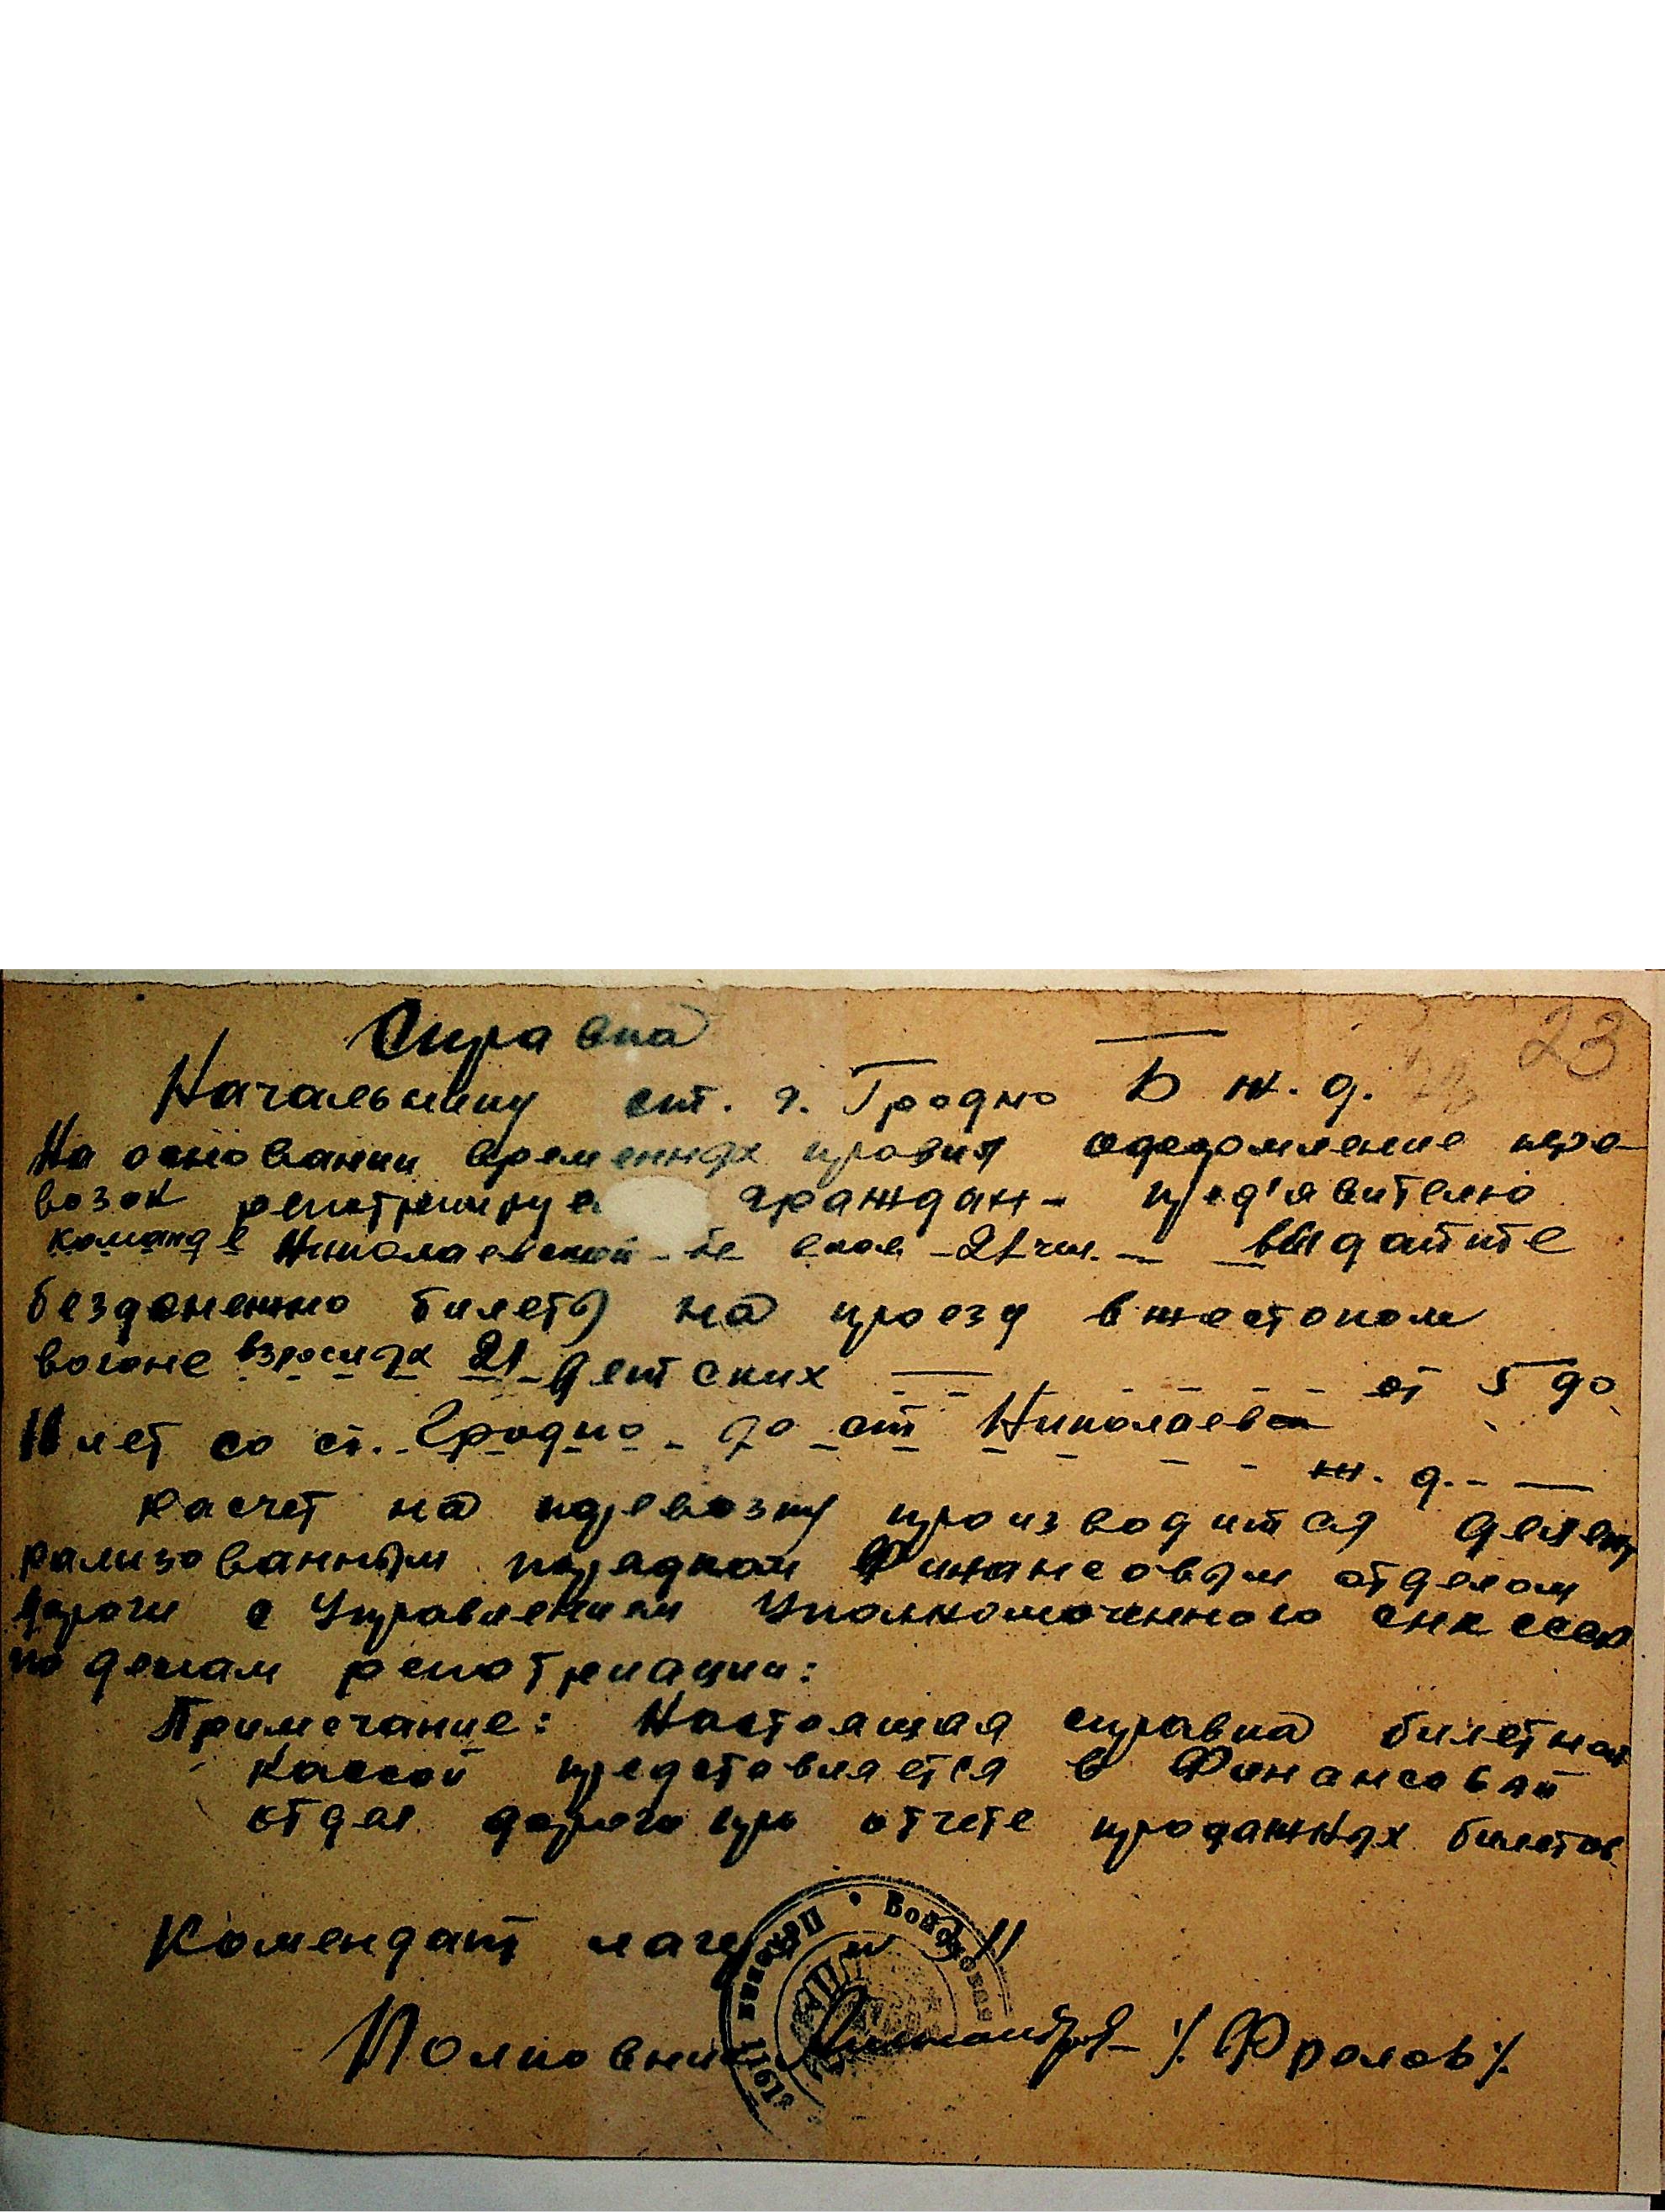 23
Справка
Начальнику ст. г. Гродно Б ж. д.
На основании временных правил оформление пере-
возок репотриируе граждан - пред'явителю
команде Николаевской - 21 чел. - выдайте
безденежно билеты на проезд в жестоком
вагоне взрослых 21 детских — от 5 до
10 лет со ст. Гродно до ст Николаев
ж. д. - —
Расчет на перевозку производится
рализованным порядком Финансовым отделом
дороги с Управлением Уполномоченного СНК СССР
по делам репотриации:
Примечание: Настоящая справка билетной
кассой представляется в Финансовый
отдел дороги при отчете проданных билетов
Комендант лагеря
Полковник /Фролов/
Войсковая
Полевая